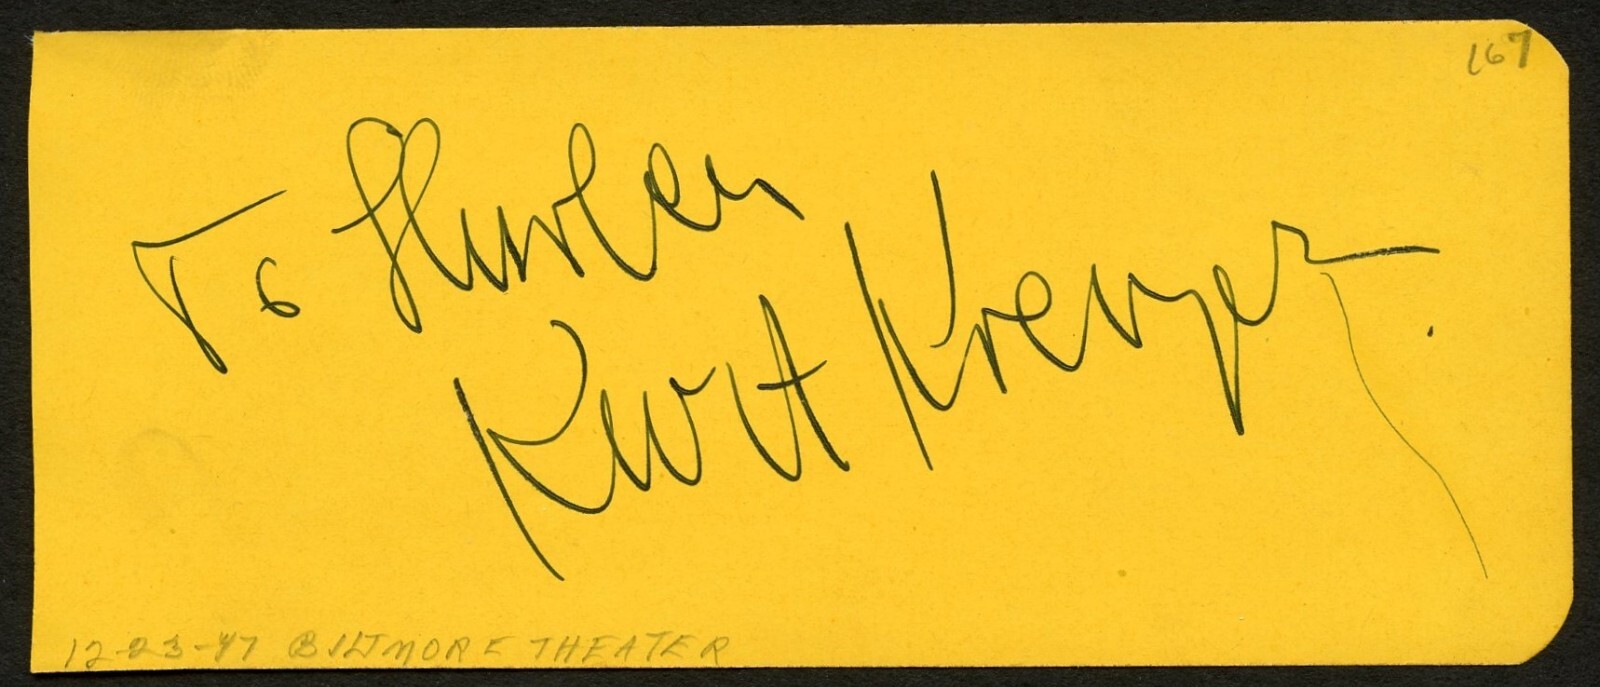 167
To Shirlee
Kurt Kreuger.
12-23-47 BILTMORE THEATER